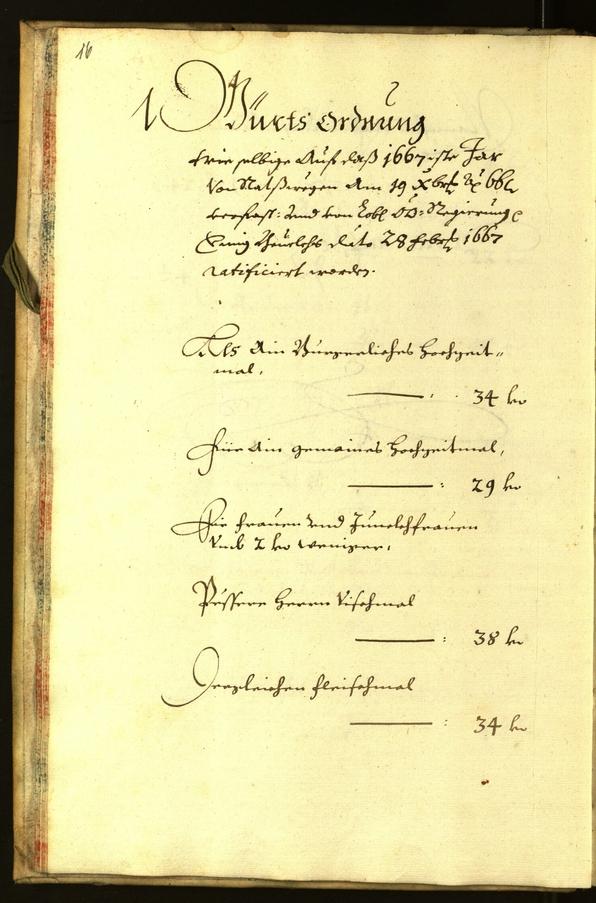 16
1 Würts Ordnung
wie selbige Auf daß 1667iste Jar
Von Ratßwegen Am 19 Xbris Ao 666
verfast: und von Lobl: OÖ: Regierung
dato 28 Febris 1667
ratificiert worden.
Als Ain Burgerliches Hochzeit-
mal,
: 34 kr
Für Ain gemaines Hochzeitmal,
: 29 kr
Die Frauen und Junckhfrauen
umb 2 kr weniger,
Pessere Herrn Vischmal
: 38 kr
Dergleichen Fleischmal
: 34 kr